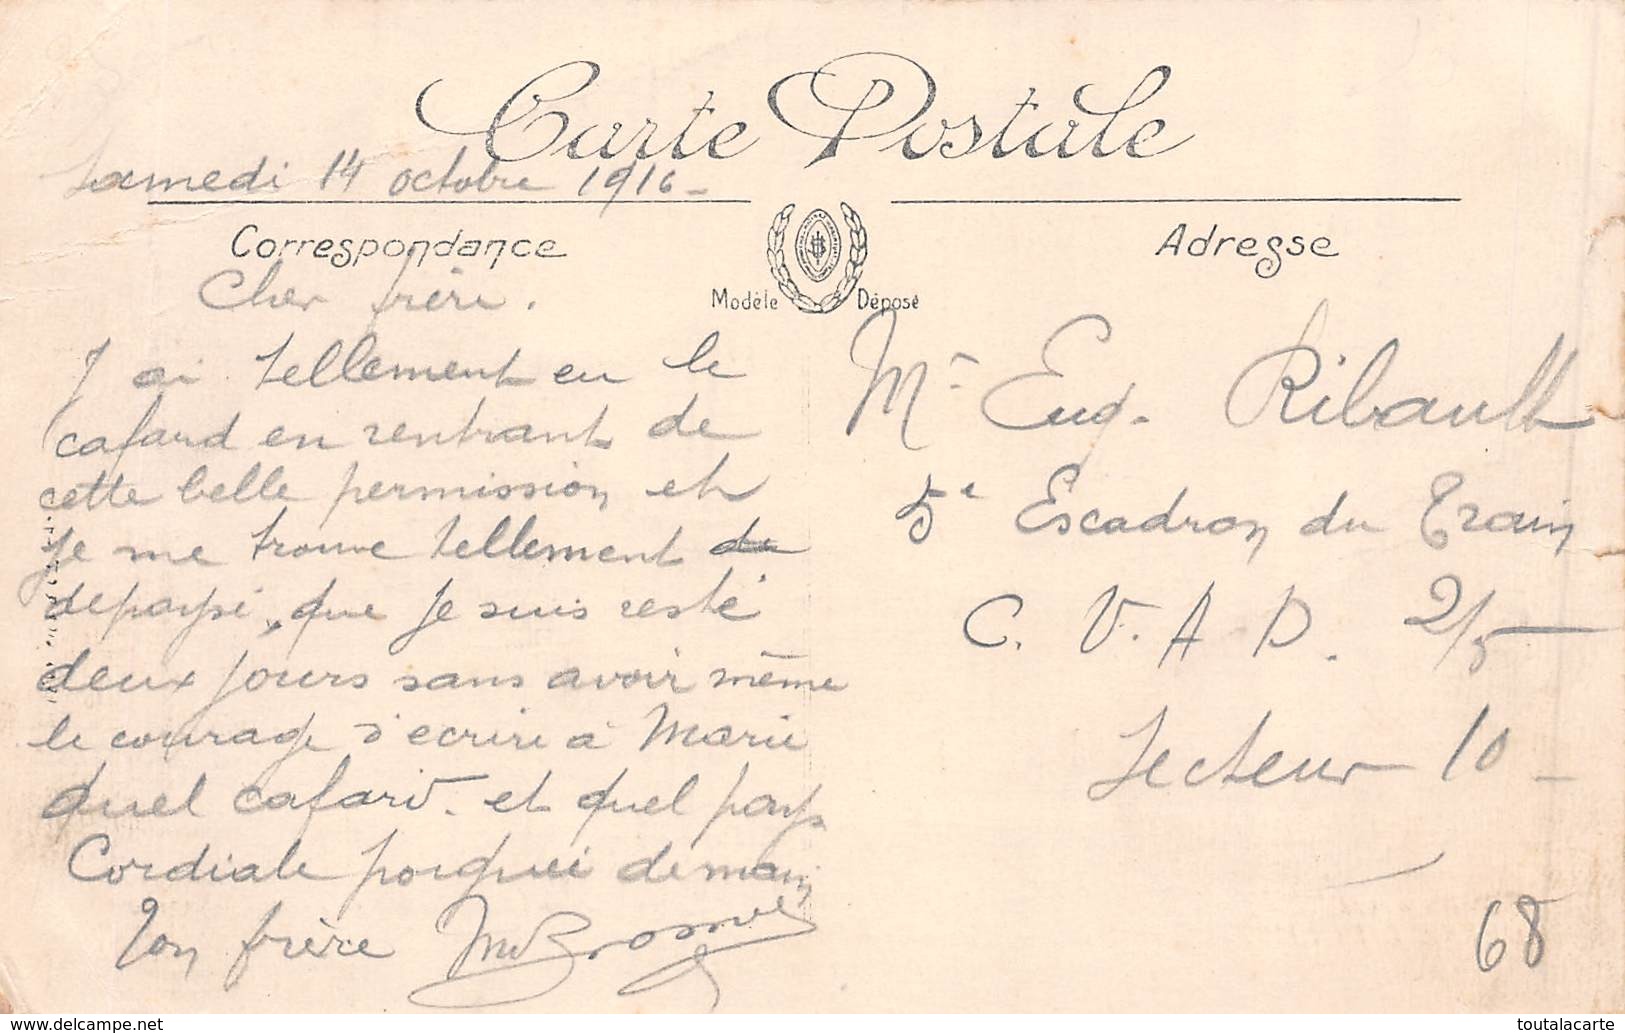 Carte Postale
Samedi 14 octobre 1916 -
Correspondance
Adresse
Modèle Déposé
Cher frère.
J ai tellement eu le
cafard en rentrant de
cette belle permission et
je me trouve tellement de
depaysé, que je suis resté
deux jours sans avoir même
le courage d'ecrire à Marie
quel cafard. et quel pays
Cordiale poignée de main
Ton frère
Mr Eug. Ribault
5e Escadron du Train
C. V. A D. 2/5
Secteur 10 -
68
https://www.delcampe.net
toutalacarte